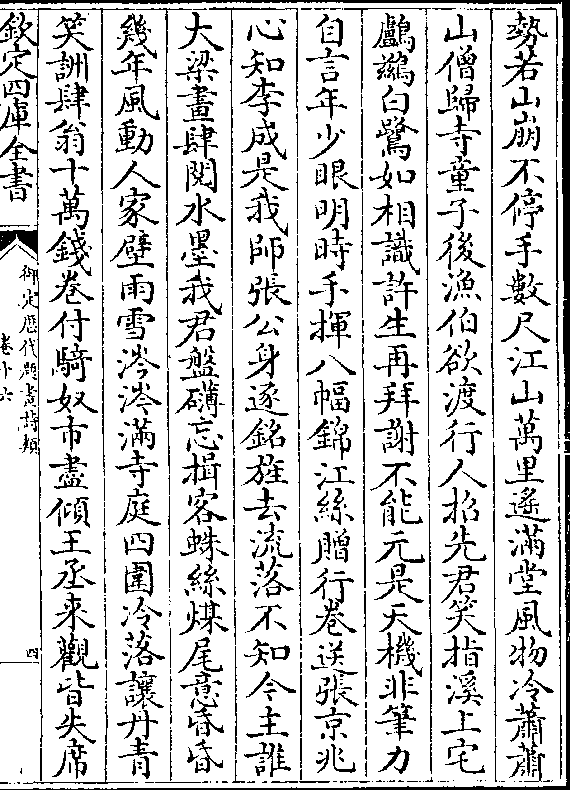 勢若山崩不停手數尺江山萬里遙滿堂風物冷蕭蕭
山僧歸寺童子後漁伯欲渡行人招先君笑指溪上宅
鸕鷀白鷺如相識許生再拜謝不能元是天機非筆力
自言年少眼明時手揮八幅錦江絲贈行卷送張京兆
心知李成是我師張公身逐銘旌去流落不知今主誰
大梁畫肆閱水墨我君盤礴忘揖客蛛絲煤尾意昏昏
幾年風動人家壁雨雪涔涔滿寺庭四圍冷落讓丹青
笑詶肆翁十萬錢卷付騎奴市盡傾王丞来觀皆失席
欽定四庫全書
御定歴代題畫詩類
卷十六
四